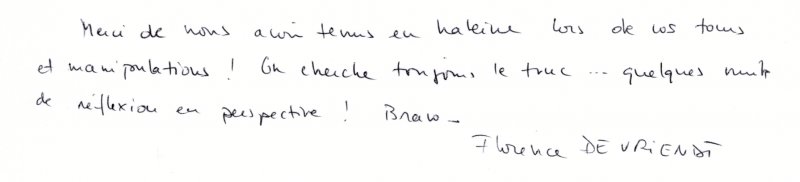 Merci de nous avoir tenus en haleine lors de vos tours
et manipulations ! On cherche toujours le truc ... quelques nuits
de réflexion en perspective ! Bravo -
Florence DE VRIENDT